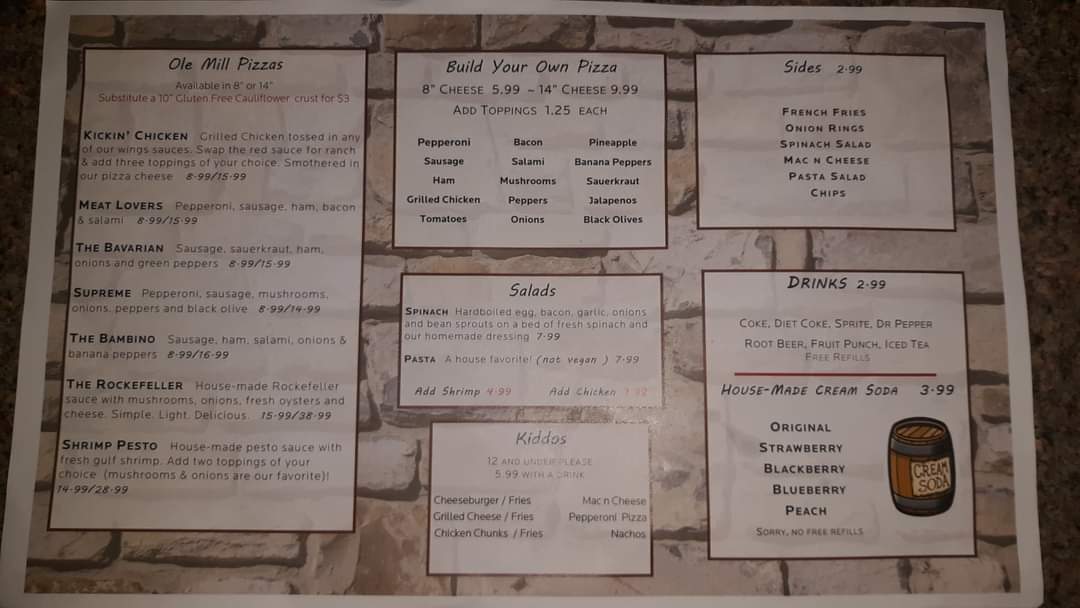 Ole Mill Pizzas
Available in 8" or 14"
Substitute a 10" Gluten Free Cauliflower crust for $3
KICKIN' CHICKEN Grilled Chicken tossed in any
of our wings sauces. Swap the red sauce for ranch
& add three toppings of your choice. Smothered in
our pizza cheese 8.99/15.99
MEAT LOVERS Pepperoni, sausage, ham, bacon
& salami 8.99/15.99
THE BAVARIAN Sausage, sauerkraut, ham,
onions and green peppers 8.99/15.99
SUPREME Pepperoni, sausage, mushrooms,
onions, peppers and black olive 8.99/14.99
THE BAMBINO Sausage, ham, salami, onions &
banana peppers 8.99/16.99
THE ROCKEFELLER House-made Rockefeller
sauce with mushrooms, onions, fresh oysters and
cheese. Simple. Light. Delicious. 15.99/38.99
SHRIMP PESTO House-made pesto sauce with
fresh gulf shrimp. Add two toppings of your
choice (mushrooms & onions are our favorite)!
14.99/28.99
Build Your Own Pizza
8" CHEESE 5.99 ~ 14" CHEESE 9.99
ADD TOPPINGS 1.25 EACH
Pepperoni Bacon Pineapple
Sausage Salami Banana Peppers
Ham Mushrooms Sauerkraut
Grilled Chicken Peppers Jalapenos
Tomatoes Onions Black Olives
Salads
SPINACH Hardboiled egg, bacon, garlic, onions
and bean sprouts on a bed of fresh spinach and
our homemade dressing 7.99
PASTA A house favorite! (not vegan ) 7.99
Add Shrimp 4.99 Add Chicken
Kiddos
12 AND UNDER PLEASE
5.99 WITH A DRINK
Cheeseburger / Fries Mac n Cheese
Grilled Cheese / Fries Pepperoni Pizza
Chicken Chunks / Fries Nachos
Sides 2.99
FRENCH FRIES
ONION RINGS
SPINACH SALAD
MAC N CHEESE
PASTA SALAD
CHIPS
DRINKS 2.99
COKE, DIET COKE, SPRITE, DR PEPPER
ROOT BEER, FRUIT PUNCH, ICED TEA
FREE REFILLS
HOUSE-MADE CREAM SODA 3.99
ORIGINAL
STRAWBERRY
BLACKBERRY
BLUEBERRY
PEACH
SORRY, NO FREE REFILLS
CREAM
SODA